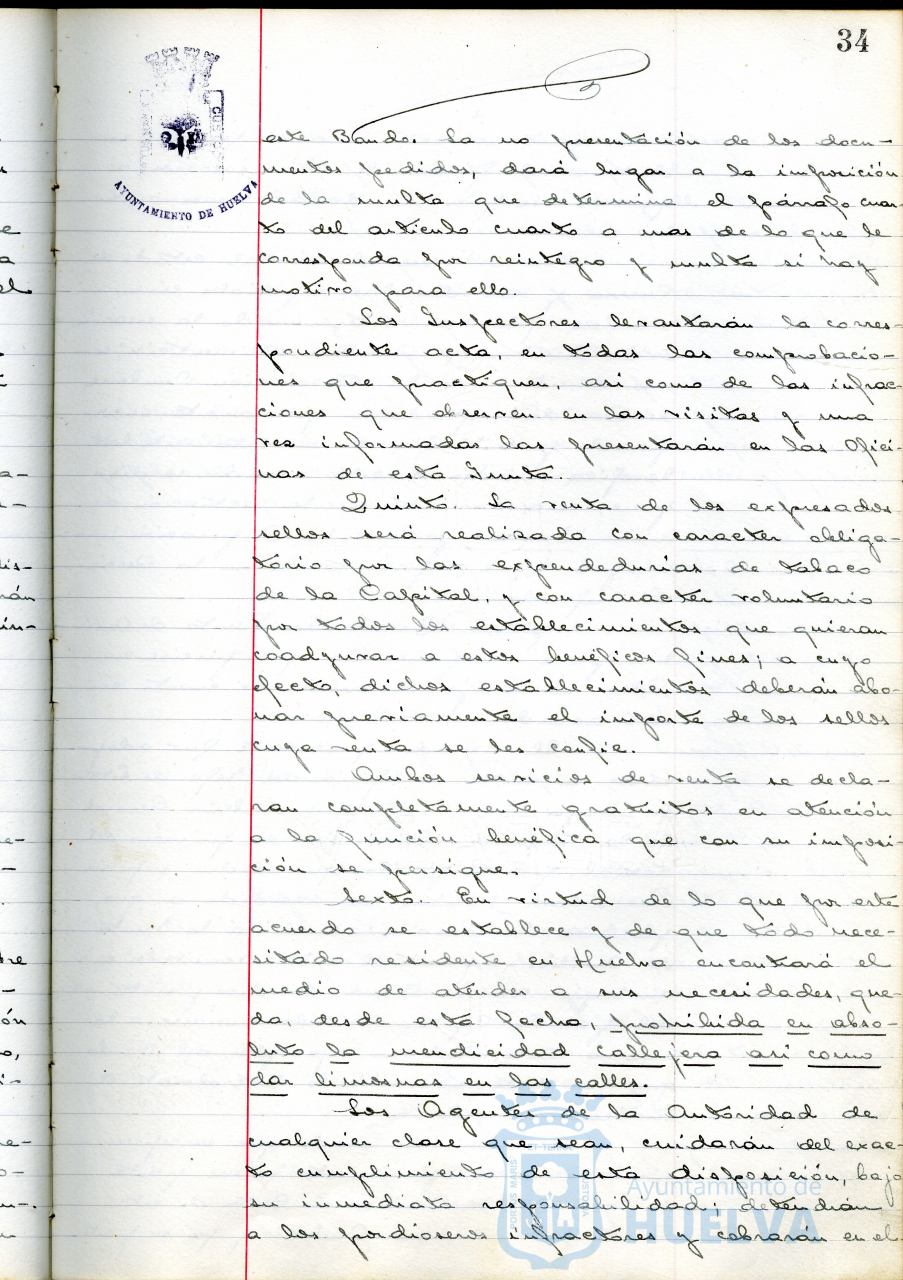 34
AYUNTAMIENTO DE HUELVA
este Bando. La no presentación de los docu-
mentos pedidos, dará lugar a la imposición
de la multa que determina el párrafo cuar-
to del articulo cuarto a mas de lo que le
corresponda por reintegro y multa si hay
motivo para ello.
Los Inspectores levantarán la corres-
pondiente acta, en todas las comprobacio-
nes que practiquen, asi como de las infrac-
ciones que observen en las visitas y una
vez informadas las presentarán en las Ofici-
nas de esta Junta.
Quinto. La venta de los expresados
sellos será realizada con caracter obliga-
torio por las expendedurias de tabaco
de la Capital, y con caracter voluntario
por todos los establecimientos que quieran
coadyuvar a estos benéficos fines; a cuyo
efecto, dichos establecimientos deberán abo-
nar previamente el importe de los sellos
cuya venta se les confie.
Ambos servicios de venta se decla-
ran completamente gratuitos en atención
a la función benéfica que con su imposi-
ción se persigue.
Sexto. En virtud de lo que por este
acuerdo se establece y de que todo nece-
sitado residente en Huelva encontrará el
medio de atender a sus necesidades, que-
da, desde esta fecha, prohibida en abso-
luto la mendicidad callejera asi como
dar limosnas en las calles.
Los Agentes de la Autoridad de
cualquier clase que sean, cuidarán del exac-
to cumplimiento de esta disposición, bajo
su inmediata responsabilidad; detendrán
a los pordioseros infractores y cobrarán en el
Ayuntamiento de
HUELVA